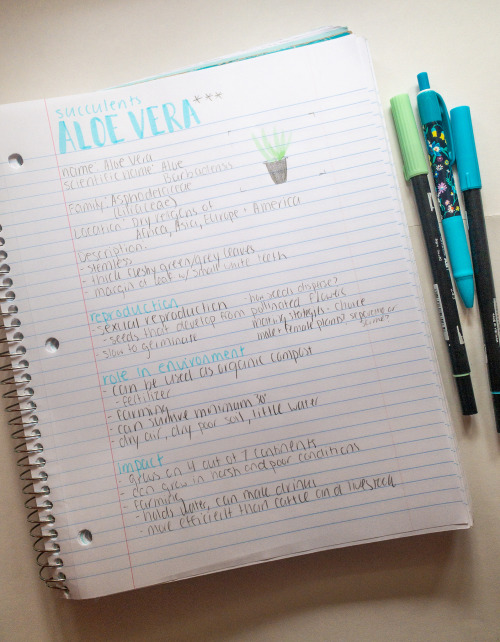 succulents
ALOE VERA ***
name: Aloe Vera
scientific name: Aloe
Barbadensis
Family: Asphodelaceae
(Liliaceae)
Location: Dry regions of
Africa, Asia, Europe + America
Description:
- stemless
- thick fleshy green/grey leaves
- margin of leaf w/ small white teeth
reproduction
- sexual reproduction
- seeds that develop from pollinated flowers
- slow to germinate
how seeds disperse?
male + female plants?
role in environment
- can be used as organic compost
- fertilizer
- farming
- can survive minimum
- dry air, dry poor soil, little water
impact
- grows on 4 out of 7 continents
- can grow in harsh and poor conditions
- farming
- holds water, can make drinks
- more efficient than cattle and livestock